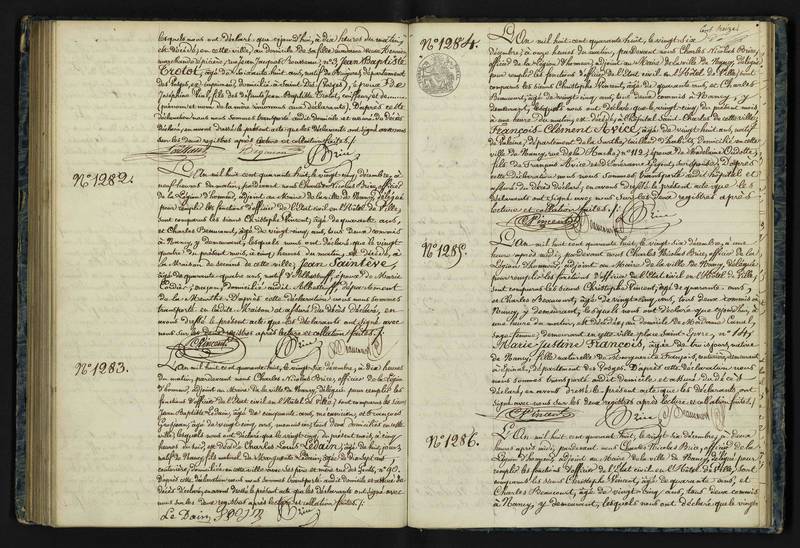 lesquels nous ont déclaré, que aujourd'hui, à dix heures du matin,
est décédé, en cette ville, au domicile de sa fille
rue Jean-Jacques Rousseau, n° 3, Jean Baptiste
Trolot, âgé de soixante huit ans, natif de département
des Vosges, domicilié à (Vosges), époux de
Joséphine fils des défunts Jean Baptiste Trolot, coiffeur, et de
(prénoms et nom de la mère inconnus aux déclarants). D'après cette
déclaration nous nous sommes transporté audit domicile et assuré du décès
déclaré, en avons dressé le présent acte que les déclarants ont signé avec nous
sur les deux registres après lecture et collation faites./.
Brice
N° 1282.
L'An mil huit cent quarante huit, le vingt-cinq décembre, à
neuf heures du matin, pardevant nous Charles Nicolas Brice, officier
de la Légion d'honneur, adjoint au Maire de la ville de Nancy, délégué
pour remplir les fonctions d'officier de l'Etat civil en l'Hôtel de Ville,
sont comparus les sieurs Christophe Vincent, âgé de quarante ans,
et Charles Beaucourt, âgé de vingt-cinq ans, tous deux commis
à Nancy, y demeurant, lesquels nous ont déclaré que le vingt
quatre du présent mois, à cinq heures du matin, est décédé, à
la Maison de Secours de cette ville, Jean Saintève
âgé de quarante quatre ans, natif d'Albestroff, époux de Marie
domicilié audit Albestroff, département
de la Meurthe. D'après cette déclaration nous nous sommes
transporté en ladite Maison et assuré du décès déclaré, en
avons dressé le présent acte que les déclarants ont signé avec
nous sur les deux registres après lecture et collation faites./.
CVincent Brice Beaucourt
N° 1283.
L'An mil huit cent quarante huit, le vingt-six décembre, à dix heures
du matin, pardevant nous Charles Nicolas Brice, officier de la Légion
d'honneur, adjoint au Maire de la ville de Nancy, délégué pour remplir les
fonctions d'officier de l'Etat civil en l'Hôtel de Ville, sont comparus les sieurs
Jean Baptiste Ledain, âgé de cinquante ans, et François
âgé de vingt-cinq ans, menuisier, tous deux domiciliés en cette
ville, lesquels nous ont déclaré que le vingt-cinq du présent mois, à cinq
heures du soir, est décédé Charles Louis Ledain, âgé de huit jours,
natif de Nancy, fils naturel de Marguerite Ledain, âgée de vingt ans
couturière, domiciliée en cette ville avec ses père et mère rue n° 90.
D'après cette déclaration nous nous sommes transporté audit domicile et assuré du
décès déclaré, en avons dressé le présent acte que les déclarants ont signé avec
nous sur les deux registres après lecture et collation faites./.
Le Dain Brice
N° 1284.
L'An mil huit cent quarante huit, le vingt-six
décembre, à onze heures du matin, pardevant nous Charles Nicolas Brice,
officier de la Légion d'honneur, adjoint au Maire de la ville de Nancy, délégué
pour remplir les fonctions d'officier de l'Etat civil en l'Hôtel de Ville, sont
comparus les sieurs Christophe Vincent, âgé de quarante ans, et Charles
Beaucourt, âgé de vingt-cinq ans, tous deux commis à Nancy, y
demeurant, lesquels nous ont déclaré que le vingt-cinq du présent mois
à une heure du matin, est décédé, à l'hôpital Saint Charles de cette ville,
François Clément Avice, âgé de vingt-huit ans, natif
de département de la Sarthe, tailleur d'habits, domicilié en cette
ville de Nancy, rue n° 112, époux de
fils de François Avice et de son épouse. D'après
cette déclaration nous nous sommes transporté audit hôpital et
assuré du décès déclaré, en avons dressé le présent acte que les
déclarants ont signé avec nous sur les deux registres après
lecture et collation faites./.
CVincent Beaucourt Brice
N° 1285.
L'An mil huit cent quarante huit, le vingt-six décembre, à une
heure après midi, pardevant nous Charles Nicolas Brice, officier de la
Légion d'honneur, adjoint au Maire de la ville de Nancy, délégué
pour remplir les fonctions d'officier de l'Etat civil en l'Hôtel de Ville,
sont comparus les sieurs Christophe Vincent, âgé de quarante ans,
et Charles Beaucourt, âgé de vingt-cinq ans, tous deux commis à
Nancy, y demeurant, lesquels nous ont déclaré que aujourd'hui, à
une heure du matin, est décédée, au domicile de Madame
sage-femme, demeurant en cette ville place Saint-Epvre, n° 14,
Marie Justine François, âgée de trois jours, native
de Nancy, fille naturelle de Marguerite François, couturière, demeurant
à Epinal, département des Vosges. D'après cette déclaration nous
nous sommes transporté audit domicile et assuré du décès
déclaré, en avons dressé le présent acte que les déclarants ont
signé avec nous sur les deux registres après lecture et collation faites./.
CVincent Brice Beaucourt
N° 1286.
L'An mil huit cent quarante huit, le vingt-six décembre, à deux
heures après midi, pardevant nous Charles Nicolas Brice, officier de la
Légion d'honneur, adjoint au Maire de la ville de Nancy, délégué pour
remplir les fonctions d'officier de l'Etat civil en l'Hôtel de Ville, sont
comparus les sieurs Christophe Vincent, âgé de quarante ans, et
Charles Beaucourt, âgé de vingt-cinq ans, tous deux commis
à Nancy, y demeurant, lesquels nous ont déclaré que le vingt